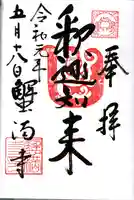 奉拝
釈迦如来
令和元年
五月十八日 蟹満寺